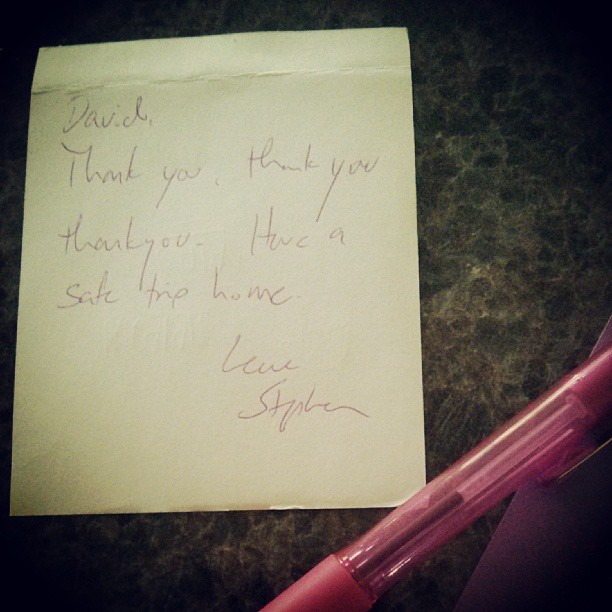 David,
Thank you, thank you
thankyou. Have a
safe trip home.
Love
Stephen